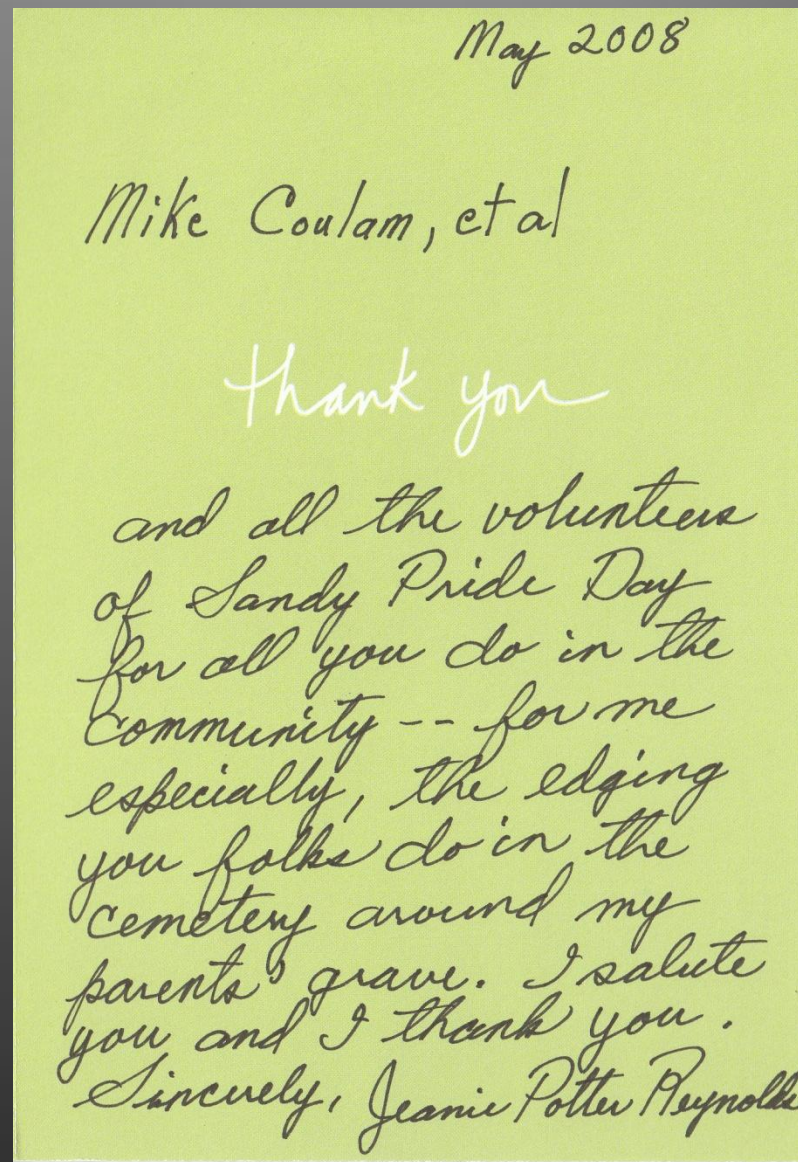 May 2008
Mike Coulam, et al
thank you
and all the volunteers
of Sandy Pride Day
for all you do in the
community -- for me
especially, the edging
you folks do in the
cemetery around my
parents' grave. I salute
you and I thank you.
Sincerely, Jeanie Potter Reynolds